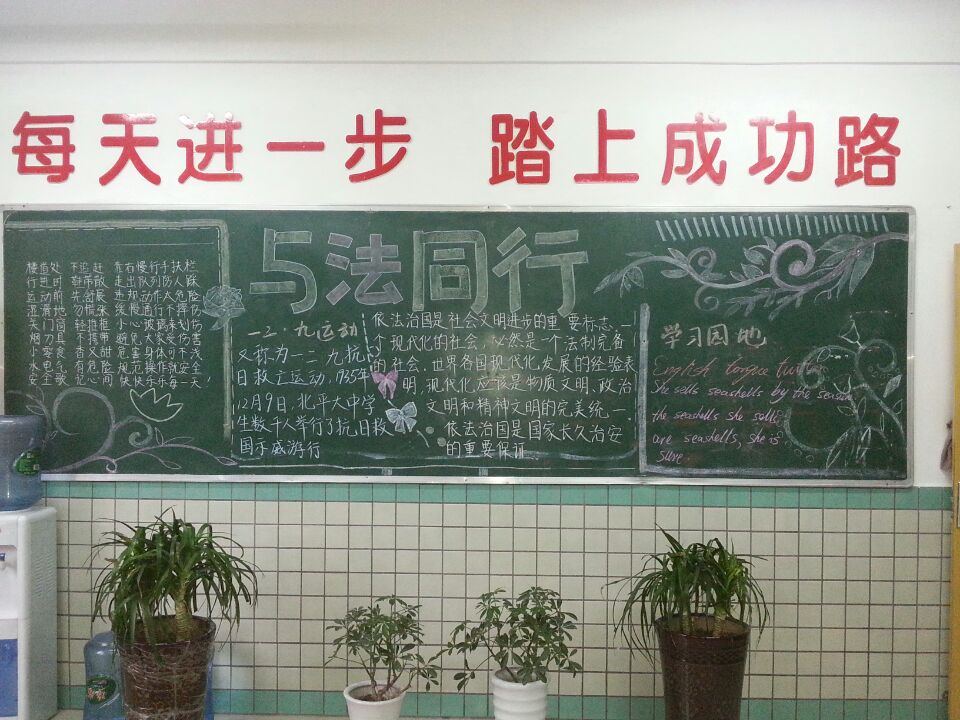 每天进一步 踏上成功路
与法同行
楼道处 不追赶 靠右慢行手扶栏
行进时 鞋带散 走出队列防人踩
运动前 先舒展 违规动作太危险
湿滑地 勿慌张 缓慢通行不摔伤
关门窗 轻推拉 小心玻璃来划伤
烟刀具 不携带 避免大家受伤害
小零食 香又甜 危害身体可不浅
水电气 有危险 规范操作就安全
安全歌 记心间 快快乐乐每一天!
一二·九运动
又称为一二九抗
日救亡运动,1935年
12月9日,北平大中学
生数千人举行了抗日救
国示威游行
依法治国是社会文明进步的重要标志,一
个现代化的社会,必然是一个法制完备
的社会.世界各国现代化发展的经验表
明,现代化应该是物质文明,政治
文明和精神文明的完美统一.
依法治国是国家长久治安
的重要保证.
学习园地
English tongue twister
She sells seashells by the seashore
the seashells she sells
are seashells, she is
sure.